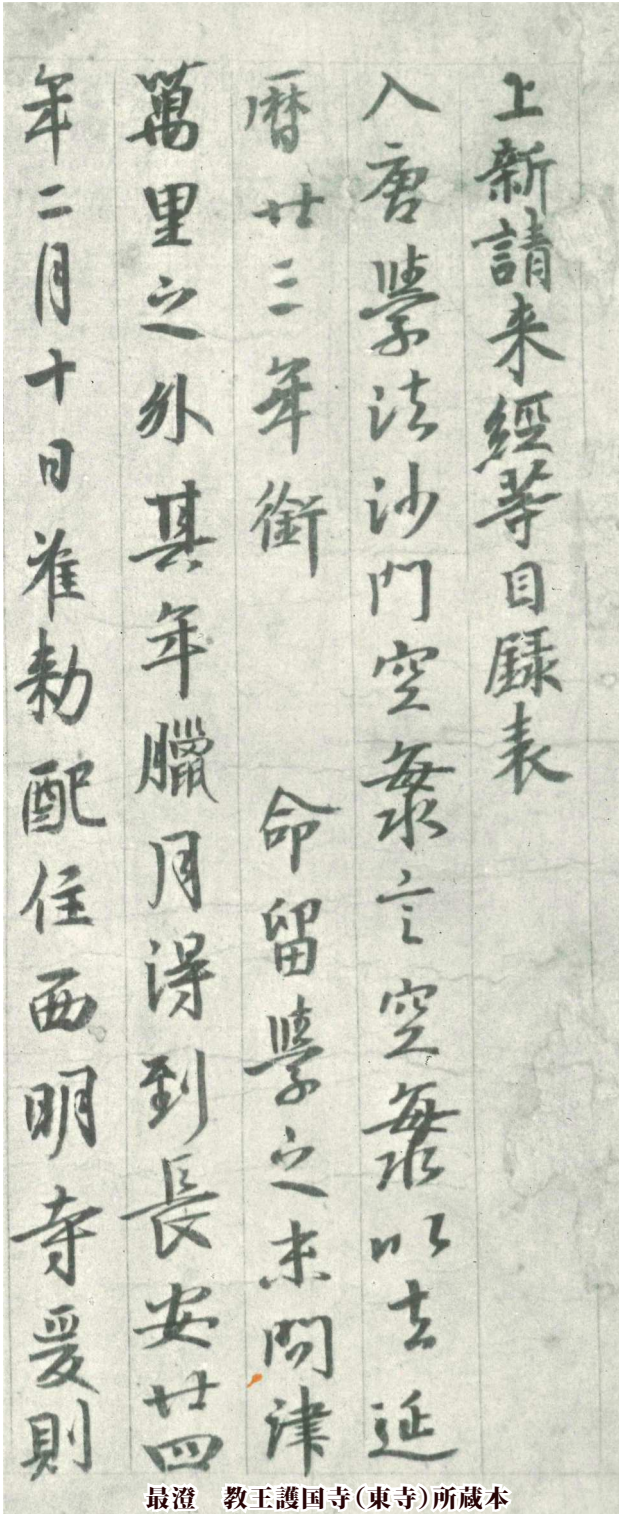 上新請来經等目録表
入唐學法沙門空海言空海以去延
暦廿三年銜　命留學之末問津
萬里之外其年臘月得到長安廿四
年二月十日准勅配住西明寺爰則
最澄　教王護国寺（東寺）所蔵本